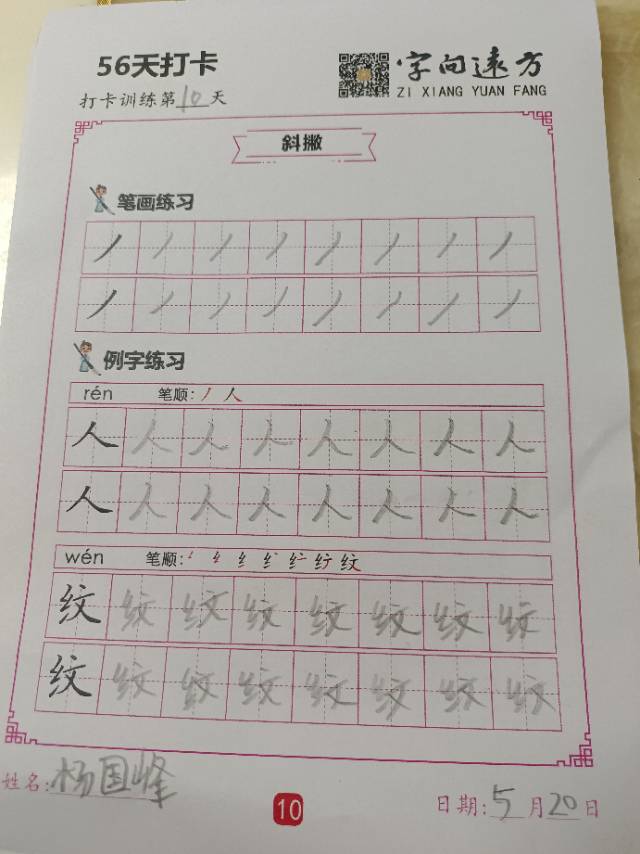 56天打卡
字向远方
ZI XIANG YUAN FANG
打卡训练第10天
斜撇
笔画练习
丿丿丿丿丿丿丿丿
丿丿丿丿丿丿丿丿
例字练习
rén 笔顺:丿人
人人人人人人人人
人人人人人人人人
wén 笔顺:
纹纹纹纹纹纹纹纹
纹纹纹纹纹纹纹纹
姓名:杨国峰
10
日期:5月20日